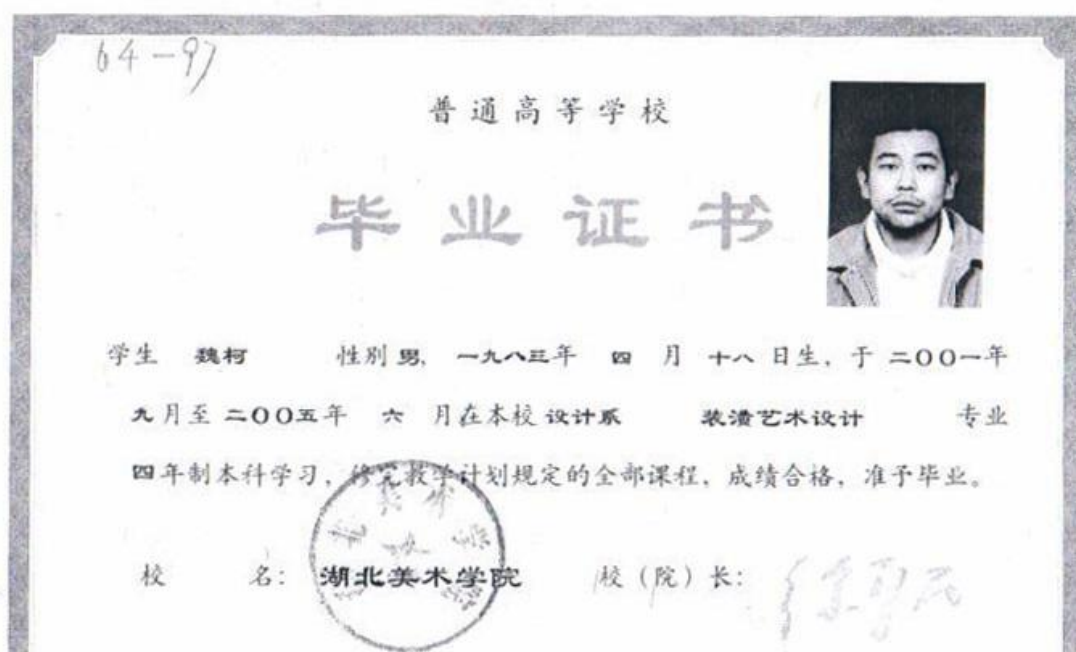 64-97
普通高等学校
毕业证书
学生 魏柯 性别 男, 一九八三年 四 月 十八 日生, 于 二00一年
九月至 二00五年 六 月在本校 设计系 装潢艺术设计 专业
四年制本科学习, 修完教学计划规定的全部课程, 成绩合格, 准予毕业。
校 名: 湖北美术学院 校(院)长: